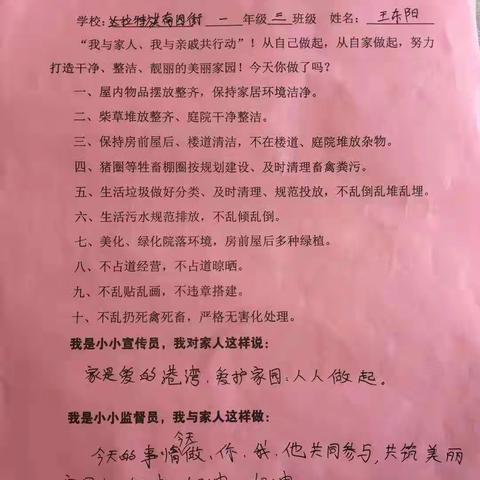 学校: 一 年级 三 班级 姓名: 王东阳
“我与家人、我与亲戚共行动”！从自己做起，从自家做起，努力
打造干净、整洁、靓丽的美丽家园！今天你做了吗？
一、屋内物品摆放整齐，保持家居环境洁净。
二、柴草堆放整齐、庭院干净整洁。
三、保持房前屋后、楼道清洁，不在楼道、庭院堆放杂物。
四、猪圈等牲畜棚圈按规划建设、及时清理畜禽粪污。
五、生活垃圾做好分类、及时清理、规范投放，不乱倒乱堆乱埋。
六、生活污水规范排放，不乱倾乱倒。
七、美化、绿化院落环境，房前屋后多种绿植。
八、不占道经营，不占道晾晒。
九、不乱贴乱画，不违章搭建。
十、不乱扔死禽死畜，严格无害化处理。
我是小小宣传员，我对家人这样说：
家是爱的港湾，爱护家园：人人做起。
我是小小监督员，我与家人这样做：
今天的事情今天做，你，我，他共同参与，共筑美丽